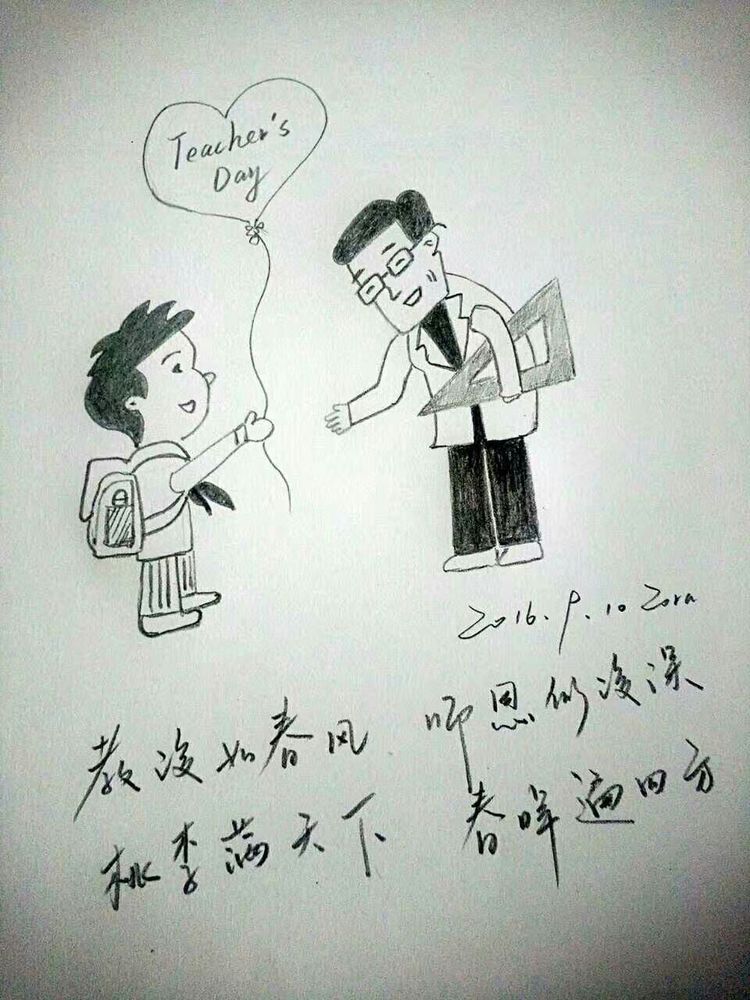 Teacher's
Day
2016.9.10 Zora
教诲如春风 师恩似海深
桃李满天下 春晖遍四方